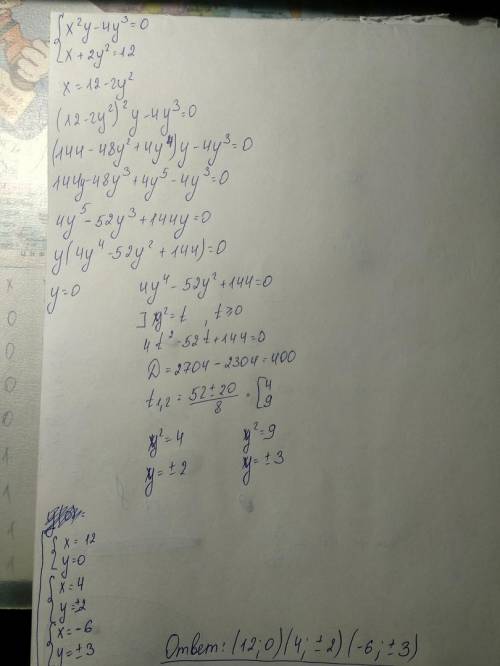 { x²y-4y³=0
{ x+2y²=12
x=12-2y²
(12-2y²)²y-4y³=0
(144-48y²+4y⁴)y-4y³=0
144y-48y³+4y⁵-4y³=0
4y⁵-52y³+144y=0
y(4y⁴-52y²+144)=0
y=0 4y⁴-52y²+144=0
] y²=t, t≥0
4t²-52t+144=0
D=2704-2304=400
t₁,₂=(52±20)/8 = [4 9
y²=4 y²=9
y=±2 y=±3
{ x=12
{ y=0
{ x=4
{ y=±2
{ x=-6
{ y=±3
Ответ: (12;0)(4;±2)(-6;±3)
x
0
0
0
0
1
1
1
1